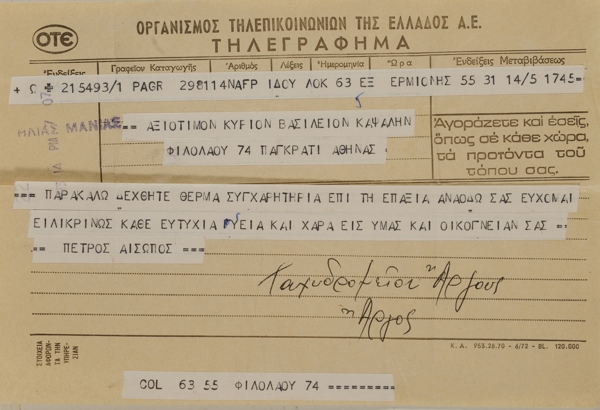 ΟΤΕ
ΟΡΓΑΝΙΣΜΟΣ ΤΗΛΕΠΙΚΟΙΝΩΝΙΩΝ ΤΗΣ ΕΛΛΑΔΟΣ Α.Ε.
ΤΗΛΕΓΡΑΦΗΜΑ
Ἐνδείξεις Γραφεῖον Καταγωγῆς Ἀριθμός Λέξεις Ἡμερομηνία Ὥρα Ἐνδείξεις Μεταβιβάσεως
+ Ω + 215493/1 PAGR 298114NAFP ΙΔΟΥ ΛΟΚ 63 ΕΞ ΕΡΜΙΟΝΗΣ 55 31 14/5 1745=
ΗΛΙΑΣ ΜΑΝΙΑΣ
== ΑΞΙΟΤΙΜΟΝ ΚΥΡΙΟΝ ΒΑΣΙΛΕΙΟΝ ΚΑΨΑΛΗΝ
ΦΙΛΟΛΑΟΥ 74 ΠΑΓΚΡΑΤΙ ΑΘΗΝΑΣ =
Ἀγοράζετε καί ἐσεῖς,
ὅπως σέ κάθε χώρα,
τά προϊόντα τοῦ
τόπου σας.
=== ΠΑΡΑΚΑΛΩ ΔΕΧΘΗΤΕ ΘΕΡΜΑ ΣΥΓΧΑΡΗΤΗΡΙΑ ΕΠΙ ΤΗ ΕΠΑΞΙΑ ΑΝΑΟΔΩ ΣΑΣ ΕΥΧΟΜΑΙ
ΕΙΛΙΚΡΙΝΩΣ ΚΑΘΕ ΕΥΤΥΧΙΑ ΥΓΕΙΑ ΚΑΙ ΧΑΡΑ ΕΙΣ ΥΜΑΣ ΚΑΙ ΟΙΚΟΓΝΕΙΑΝ ΣΑΣ ==
== ΠΕΤΡΟΣ ΑΙΣΩΠΟΣ ===
Ταχυδρομεῖον Ἄργους
Ἄργος
ΣΤΟΙΧΕΙΑ
ΑΦΟΡΩΝ-
ΤΑ ΤΗΝ
ΥΠΗΡΕ-
ΣΙΑΝ
Κ.Α. 953.26.70 - 6/72 - BL. 120.000
COL 63 55 ΦΙΛΟΛΑΟΥ 74 =========